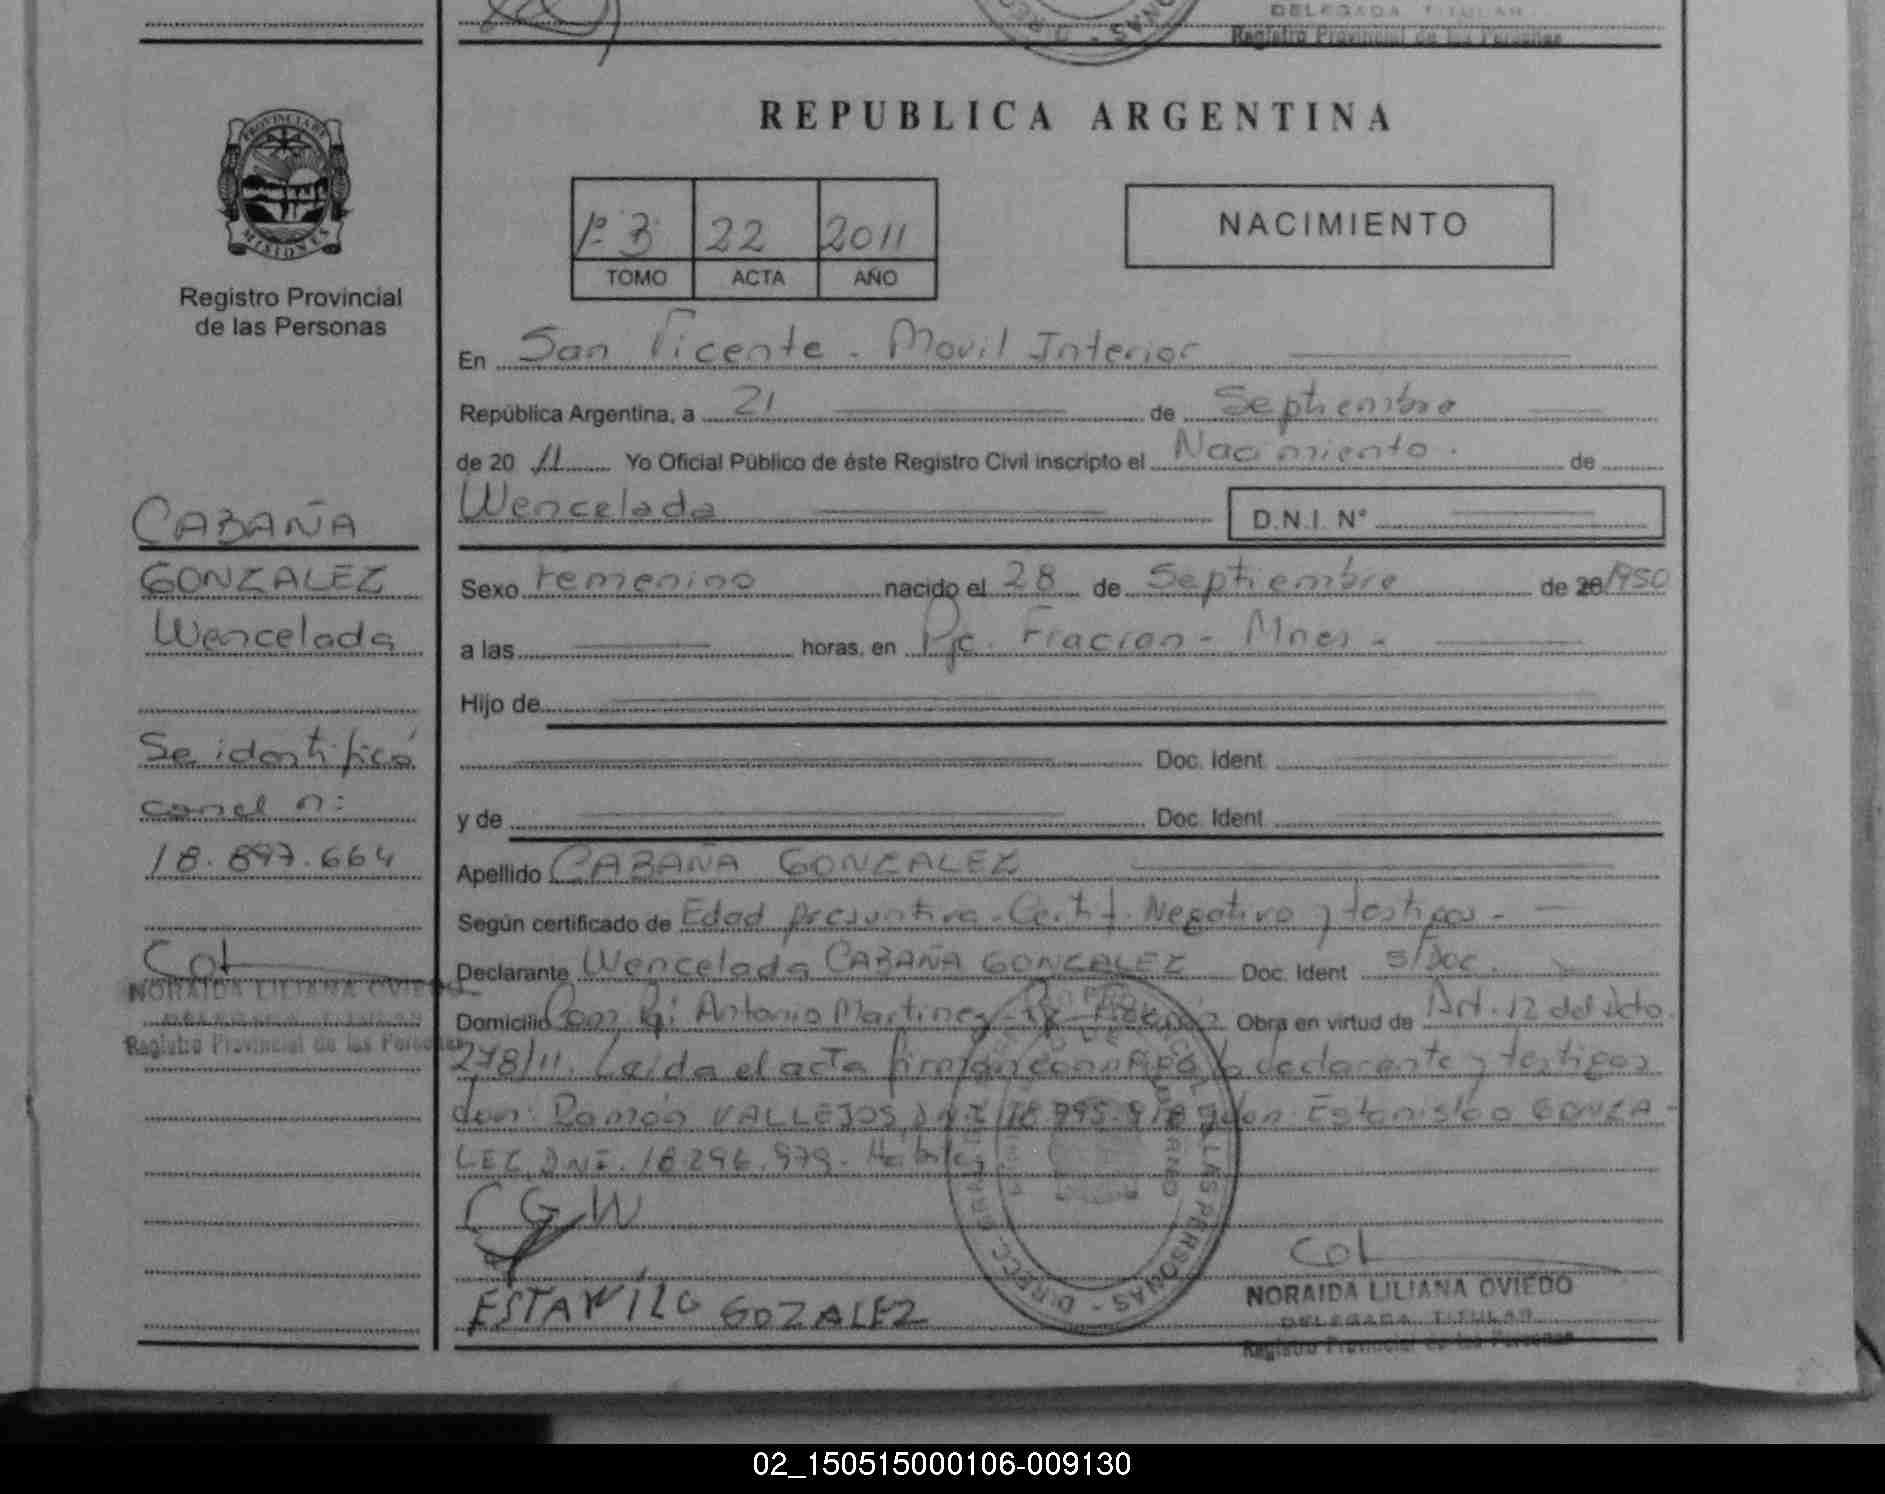 DELEGADA TITULAR
Registro Provincial de las Personas
PROVINCIA DE
MISIONES
Registro Provincial
de las Personas
CABAÑA
GONZALEZ
Wencelada
Se identificó
con el n:
18.897.664
NORAIDA LILIANA OVIEDO
DELEGADA TITULAR
Registro Provincial de las Personas
REPUBLICA ARGENTINA
1º 3 22 2011
TOMO ACTA AÑO
NACIMIENTO
En San Vicente - Movil Interior
República Argentina, a 21 de Septiembre
de 20 11 Yo Oficial Público de éste Registro Civil inscripto el Nacimiento. de
Wencelada D.N.I. Nº
Sexo Femenino nacido el 28 de Septiembre de 20 1950
a las horas, en Pje. Fracran - Mnes -
Hijo de
Doc. Ident.
y de Doc. Ident.
Apellido CABAÑA GONZALEZ
Según certificado de Edad presuntiva - Certif. Negativo y testigos -
Declarante Wencelada CABAÑA GONZALEZ Doc. Ident s/Doc.
Domicilio Com. Antonio Martinez Obra en virtud de Art. 12 del Dcto.
278/11. Leída el acta firman conmigo la declarante y testigos
don: Ramón VALLEJOS D.N.I. don: Estanislao GONZA-
LEZ DNI. 18.296.979. Hábiles
C G W
ESTANILO GOZALEZ
NORAIDA LILIANA OVIEDO
DELEGADA TITULAR
Registro Provincial de las Personas
02_150515000106-009130